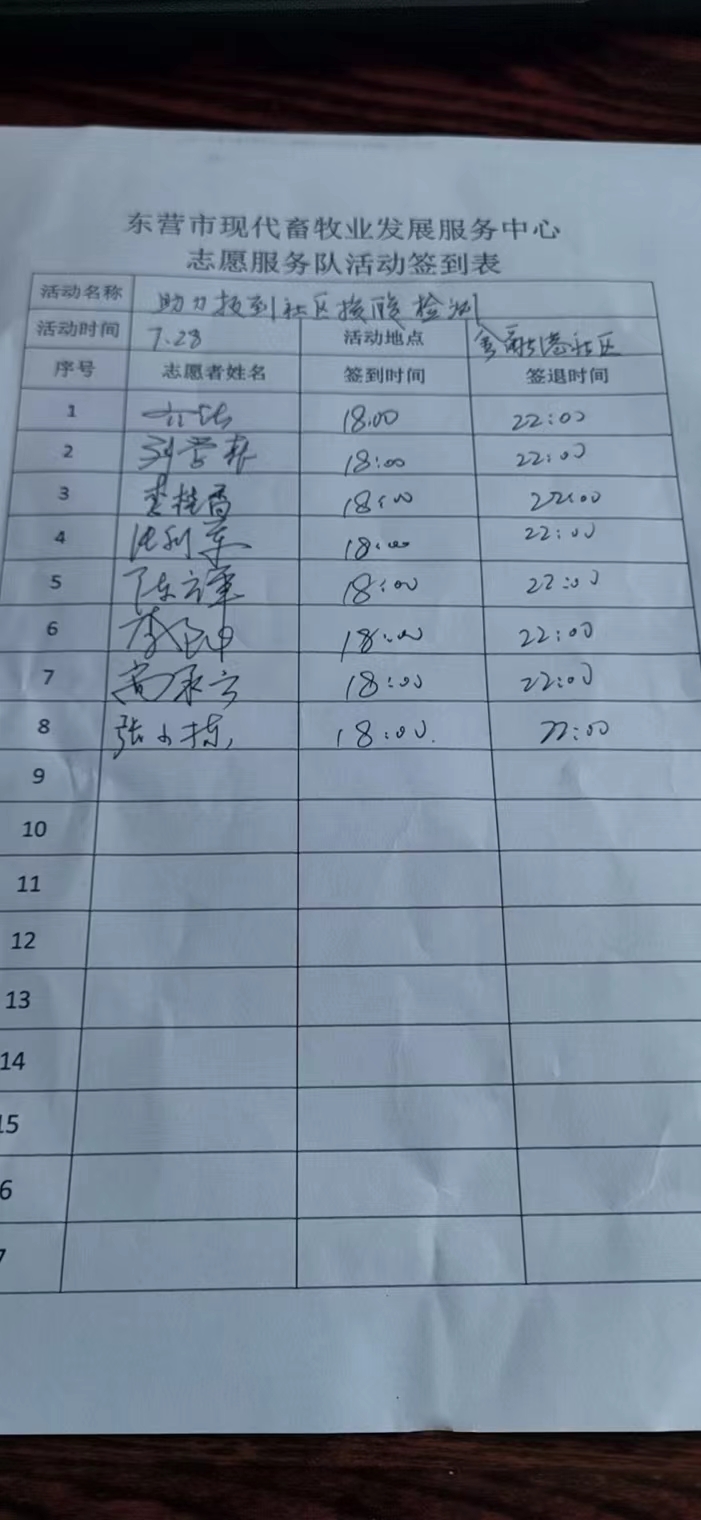 东营市现代畜牧业发展服务中心
志愿服务队活动签到表
活动名称 助力报到社区核酸检测
活动时间 7.28 活动地点 金融港社区
序号 志愿者姓名 签到时间 签退时间
1 18:00 22:00
2 刘学林 18:00 22:00
3 李桂香 18:00 22:00
4 18:00 22:00
5 陈立军 18:00 22:00
6 18:00 22:00
7 18:00 22:00
8 张小栋 18:00 22:00
9
10
11
12
13
14
15
6
7